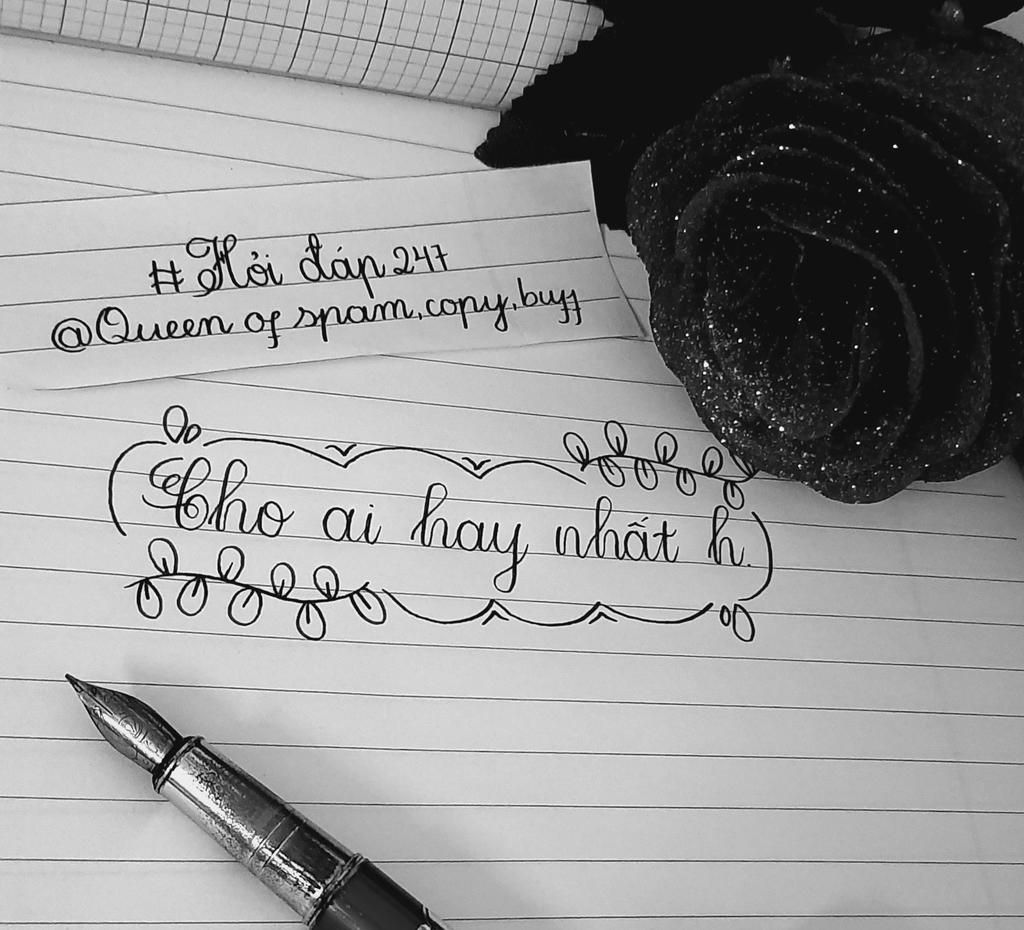 #Hỏi đáp 247
@Queen of spam,copy,buff
Cho ai hay nhất h.